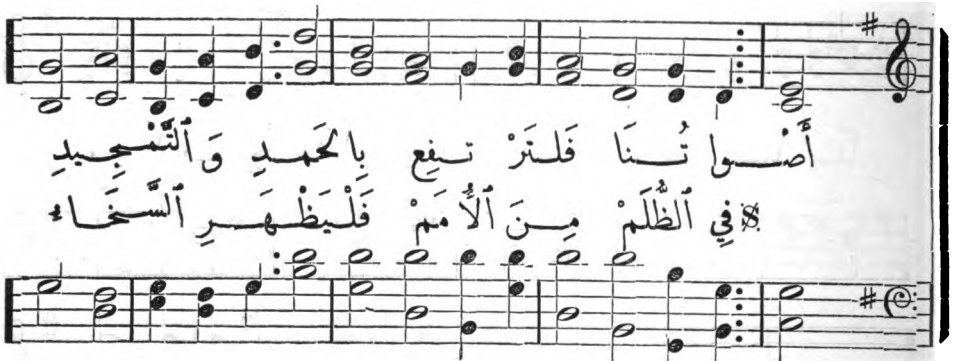 أَصْـوا تُـنَا فَلتَرْ تـفِع بِالحَمدِ وَ ٱلتَّمْجِيدِ
فِي ٱلظُّلَمْ مِـنَ ٱلأُمَمْ فَلْيَظْـهَـرِ ٱلسَّخَـاءُ